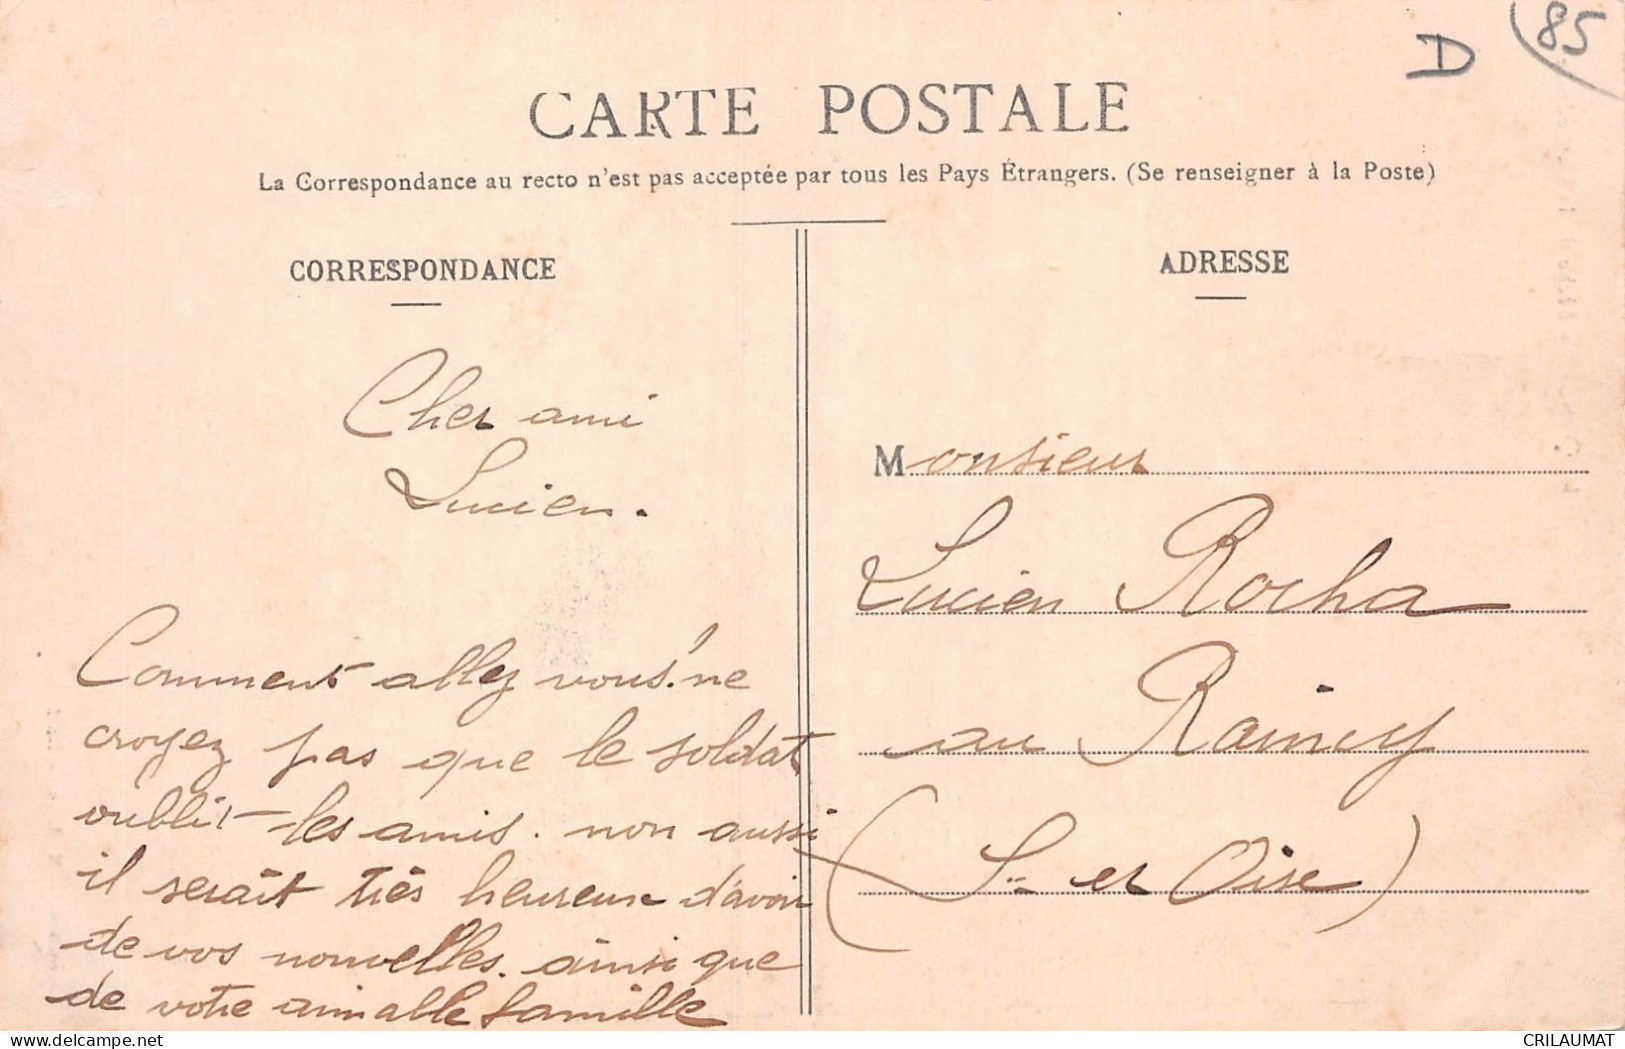 85
D
CARTE POSTALE
La Correspondance au recto n'est pas acceptée par tous les Pays Étrangers. (Se renseigner à la Poste)
CORRESPONDANCE
Cher ami
Lucien.
Comment allez vous! ne
croyez pas que le soldat
oublit les amis. non aussi
il serait très heureux d'avoir
de vos nouvelles. ainsi que
de votre aimable famille
ADRESSE
Monsieur
Lucien Rocha
au Raincy
(S. et Oise)
delcampe.net
CRILAUMAT